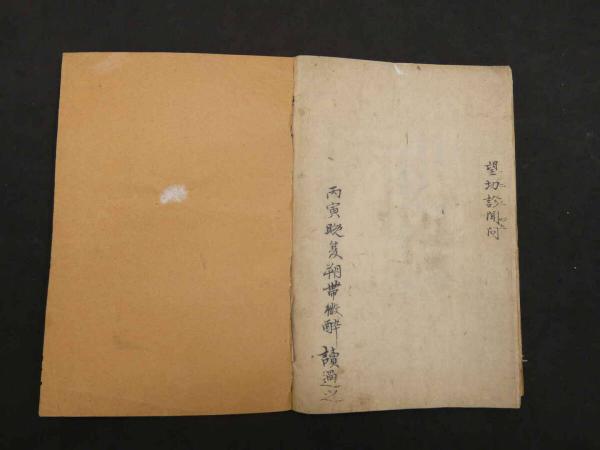 望切診聞問
丙寅晚夏朔帶微醉讀過之